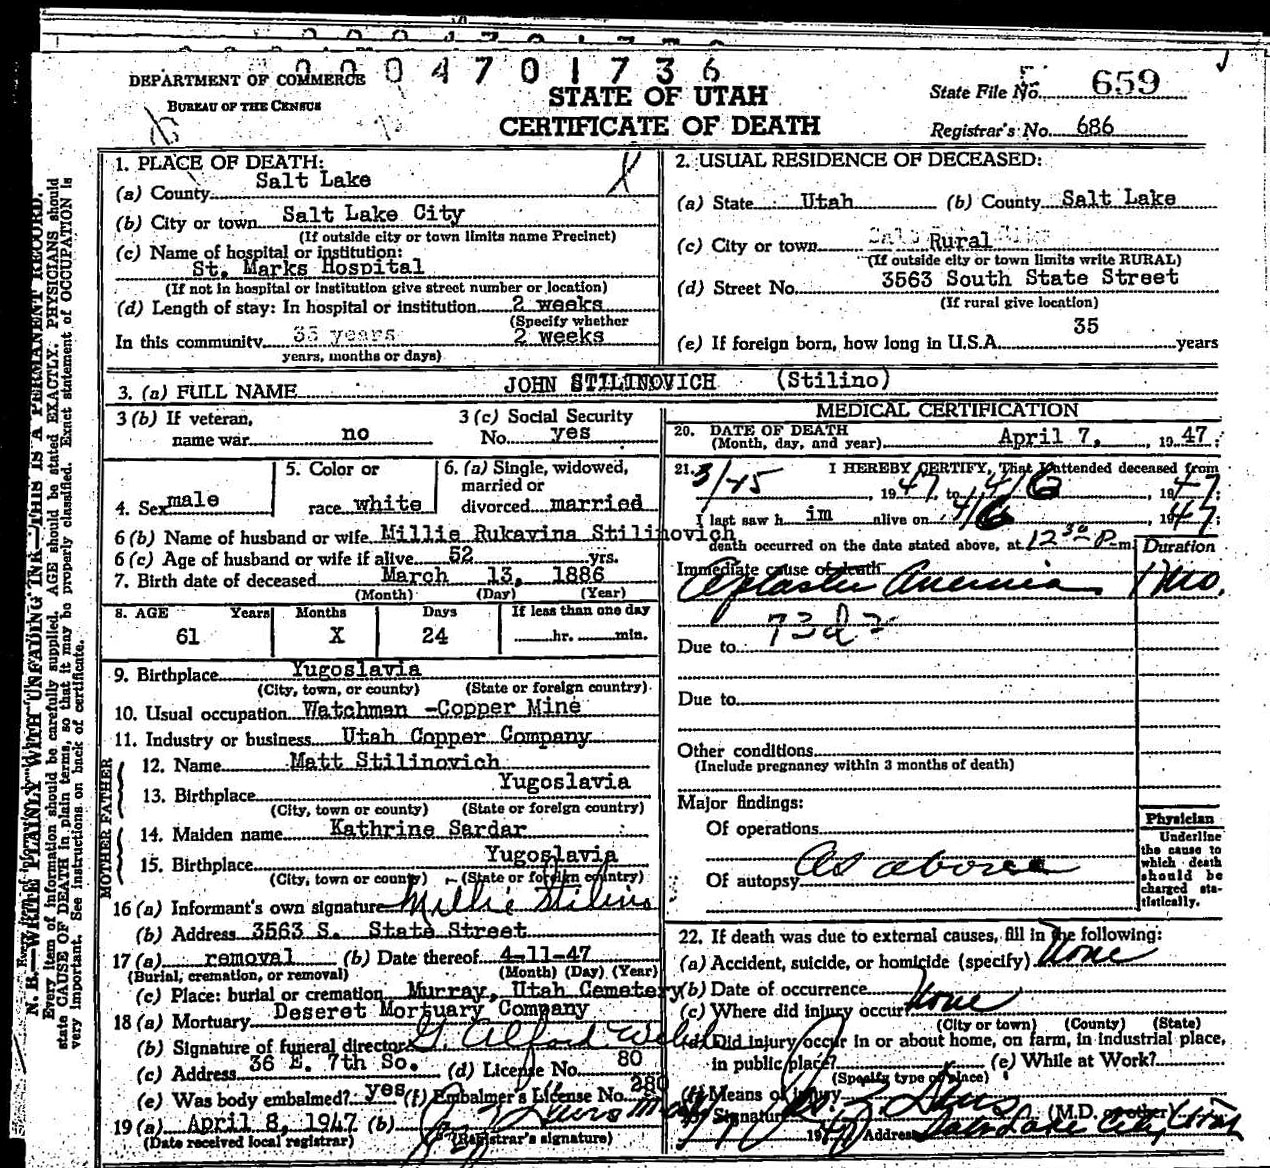 0004701736
DEPARTMENT OF COMMERCE
BUREAU OF THE CENSUS
STATE OF UTAH
CERTIFICATE OF DEATH
State File No. 659
Registrar's No. 686
1. PLACE OF DEATH:
(a) County Salt Lake
(b) City or town Salt Lake City
(If outside city or town limits name Precinct)
(c) Name of hospital or institution:
St. Marks Hospital
(If not in hospital or institution give street number or location)
(d) Length of stay: In hospital or institution 2 weeks
(Specify whether
In this community 35 years 2 weeks
years, months or days)
2. USUAL RESIDENCE OF DECEASED:
(a) State Utah (b) County Salt Lake
(c) City or town Rural
(If outside city or town limits write RURAL)
(d) Street No. 3563 South State Street
(If rural give location)
(e) If foreign born, how long in U.S.A. 35 years
3. (a) FULL NAME JOHN STILINOVICH (Stilino)
3 (b) If veteran, name war no
3 (c) Social Security No. yes
4. Sex male
5. Color or race white
6. (a) Single, widowed, married or divorced married
6 (b) Name of husband or wife Millie Rukavina Stilinovich
6 (c) Age of husband or wife if alive 52 yrs.
7. Birth date of deceased March 13, 1886
(Month) (Day) (Year)
8. AGE Years Months Days If less than one day
61 X 24 hr. min.
9. Birthplace Yugoslavia
(City, town, or county) (State or foreign country)
10. Usual occupation Watchman -Copper Mine
11. Industry or business Utah Copper Company
FATHER
12. Name Matt Stilinovich
13. Birthplace Yugoslavia
(City, town or county) (State or foreign country)
MOTHER
14. Maiden name Kathrine Sardar
15. Birthplace Yugoslavia
(City, town or county) (State or foreign country)
16 (a) Informant's own signature Millie Stilino
(b) Address 3563 S. State Street
17 (a) removal (b) Date thereof 4-11-47
(Burial, cremation, or removal) (Month) (Day) (Year)
(c) Place: burial or cremation Murray, Utah Cemetery
18 (a) Mortuary Deseret Mortuary Company
(b) Signature of funeral director G. Alford Welsh
(c) Address 36 E. 7th So. (d) License No. 80
(e) Was body embalmed? yes (f) Embalmer's License No. 280
19 (a) April 8, 1947 (b)
(Date received local registrar) (Registrar's signature)
MEDICAL CERTIFICATION
20. DATE OF DEATH
(Month, day, and year) April 7, 1947;
21. I HEREBY CERTIFY, That I attended deceased from
1947, to 4/6 1947;
I last saw him alive on 4/6 1947;
death occurred on the date stated above, at 12 30 P m
Duration
Immediate cause of death
Aplastic Anemia
Due to
Due to
Other conditions
(Include pregnancy within 3 months of death)
Major findings:
Of operations
Of autopsy as above
Physician
Underline
the cause to
which death
should be
charged sta-
tistically.
22. If death was due to external causes, fill in the following:
(a) Accident, suicide, or homicide (specify) None
(b) Date of occurrence
(c) Where did injury occur? None
(City or town) (County) (State)
(d) Did injury occur in or about home, on farm, in industrial place,
in public place? (e) While at Work?
(Specify type of place)
(f) Means of injury
Signature (M.D. or other)
Address Salt Lake City, Utah
N. B.—WRITE PLAINLY WITH UNFADING INK—THIS IS A PERMANENT RECORD.
Every item of information should be carefully supplied. AGE should be stated EXACTLY. PHYSICIANS should
state CAUSE OF DEATH in plain terms, so that it may be properly classified. Exact statement of OCCUPATION is
very important. See instructions on back of certificate.